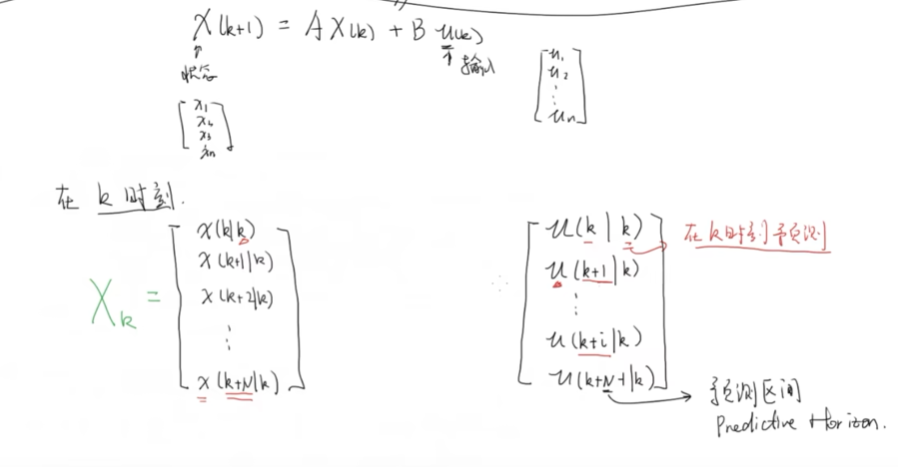 X(k+1) = A X(k) + B u(k)
状态
输入
[x₁ x₂ x₃ xₙ]
[u₁ u₂ ⋮ uₙ]
在 k 时刻.
Xₖ =
x(k|k)
x(k+1|k)
x(k+2|k)
⋮
x(k+N|k)
u(k|k)
在k时刻预测
u(k+1|k)
⋮
u(k+i|k)
u(k+N-1|k)
预测区间
Predictive Horizon.